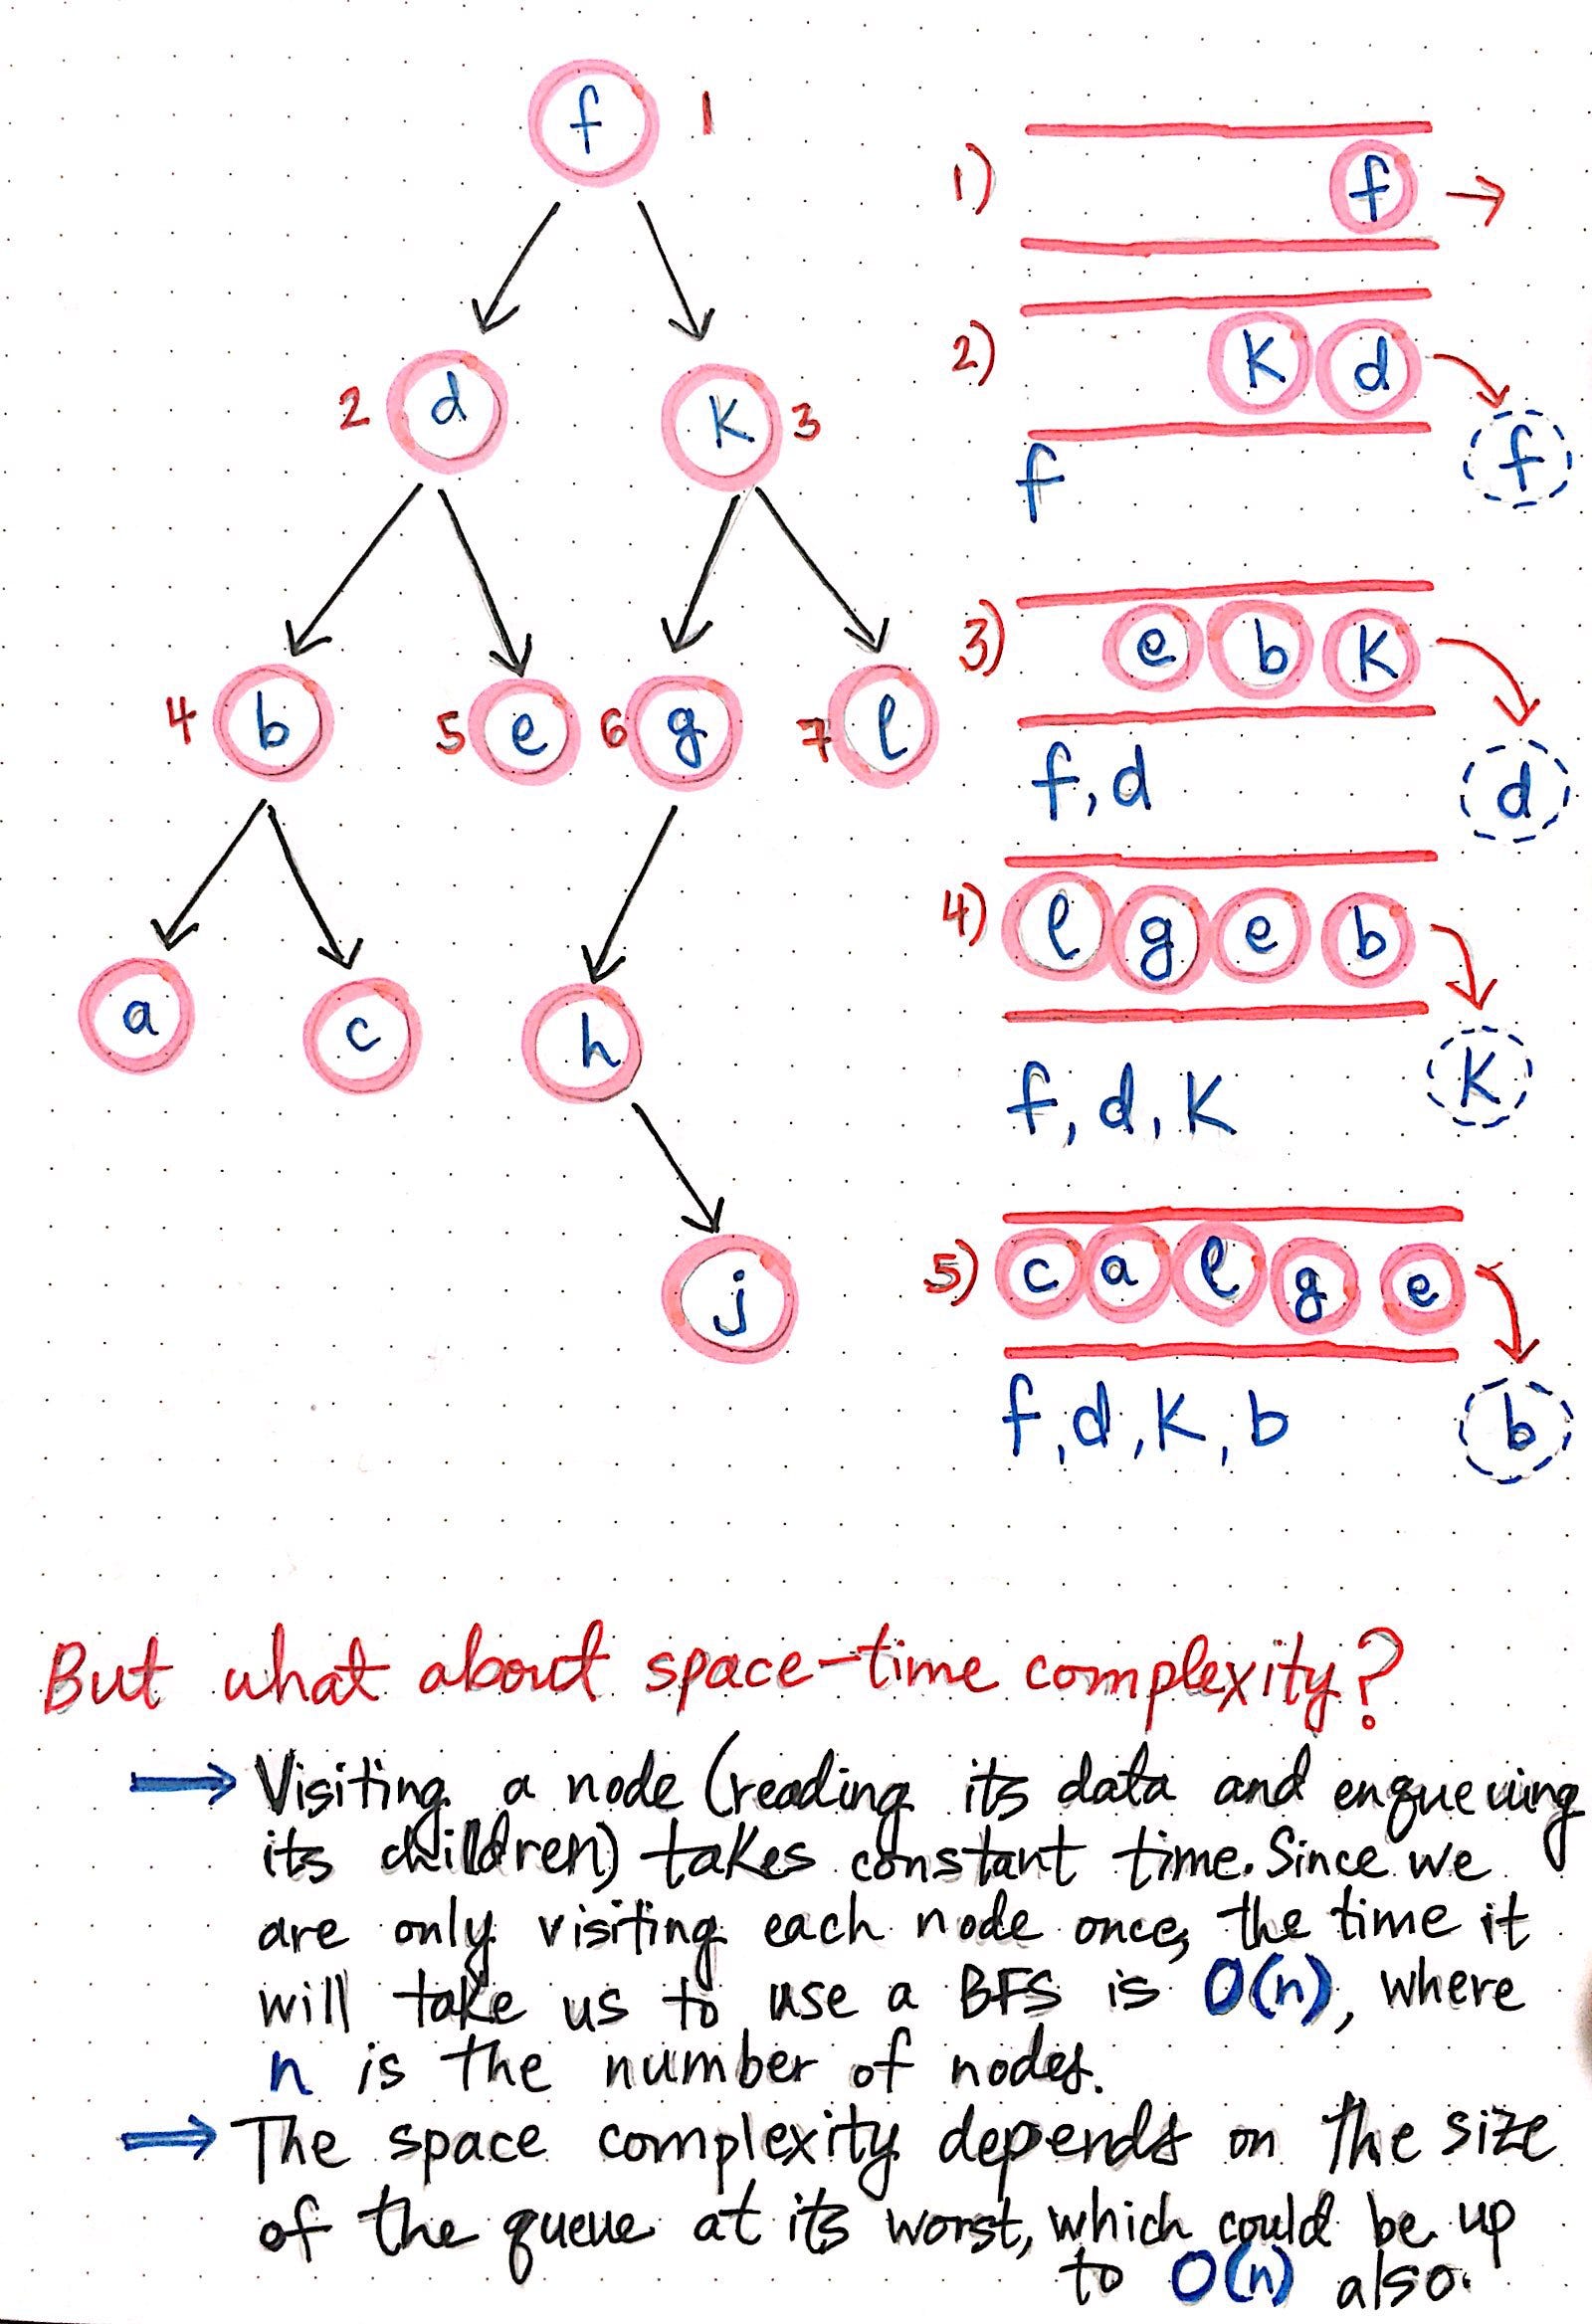 f 1
1) f
2) K d
f
f
2 d K 3
3) e b K
f, d
d
4 b 5 e 6 g 7 l
4) l g e b
f, d, K
K
a c h
5) c a l g e
f, d, K, b
b
j
But what about space-time complexity?
Visiting a node (reading its data and enqueuing
its children) takes constant time. Since we
are only visiting each node once, the time it
will take us to use a BFS is O(n), where
n is the number of nodes.
The space complexity depends on the size
of the queue at its worst, which could be up
to O(n) also.